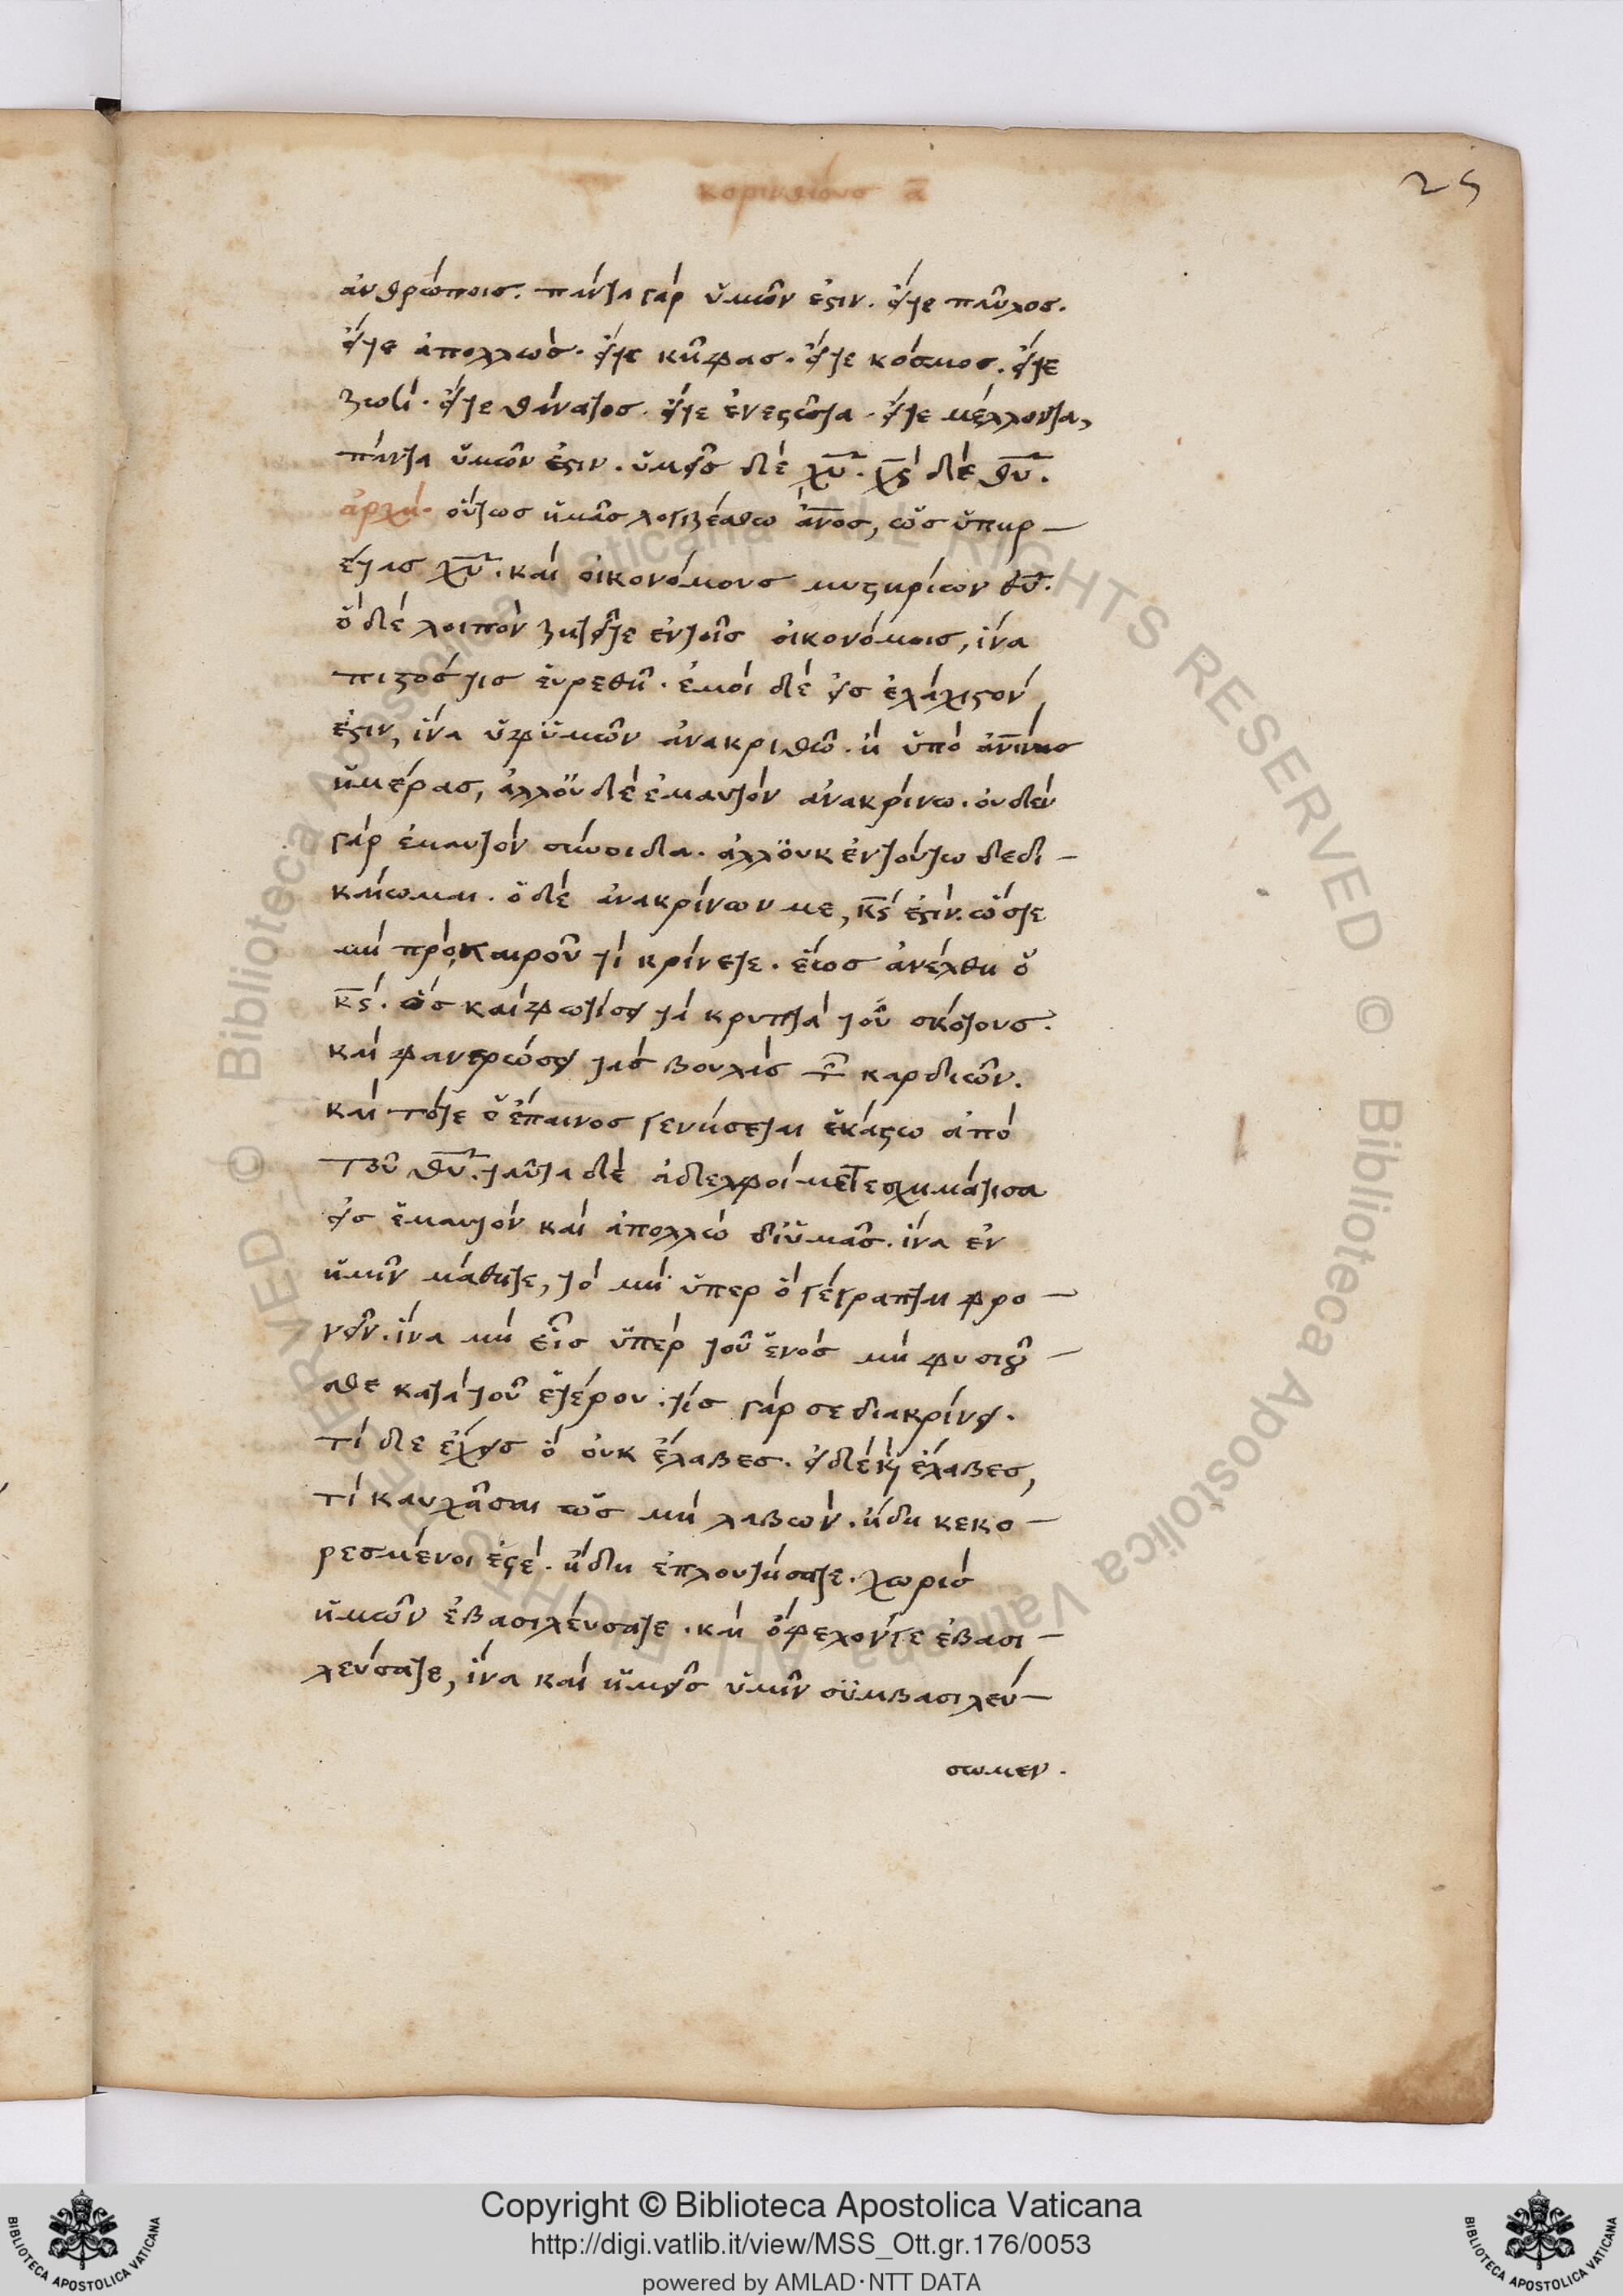 κορινθίουσ α̅
25
ἀνθρώποισ. πάντα γὰρ ὑμῶν ἐστιν. εἴτε παῦλοσ.
εἴτε ἀπολλὼσ. εἴτε κηφασ. εἴτε κόσμοσ. εἴτε
ζωὴ. εἴτε θάνατοσ. εἴτε ἐνεστῶτα. εἴτε μέλλοντα,
πάντα ὑμῶν ἐστιν. ὑμεῖσ δὲ χ̅υ̅. χ̅ς̅ δὲ θ̅υ̅.
ἀρχὴ. οὕτωσ ἡμᾶσ λογιζέσθω ἄν̅ο̅σ̅, ὡσ ὑπηρ‒
έτασ χ̅υ̅. καὶ οἰκονόμουσ μυστηρίων θ̅υ̅.
ὃ δὲ λοιπὸν ζητεῖτε ἐντοῖσ οἰκονόμοισ, ἵνα
πιστόσ τισ εὑρεθῆ. ἐμοὶ δὲ εἰσ ἐλάχιστόν
ἐστιν, ἵνα ὑφὑμῶν ἀνακριθῶ. ἢ ὑπὸ ἀν̅ίνησ
ἡμέρασ, ἀλλοὐδὲ ἐμαυτὸν ἀνακρίνω. οὐδὲν
γὰρ ἐμαυτὸν σύνοιδα. ἀλλοὐκ ἐντούτω δεδι‒
καίωμαι. ὁ δὲ ἀνακρίνων με, κ̅ς̅ ἐστιν. ὥστε
μὴ πρὸκαιροῦ τὶ κρίνετε. ἕωσ ἀνέλθη ὁ
κ̅ς̅. ὃσ καὶ φωτίσει τὰ κρυπτὰ τοῦ σκότουσ.
καὶ φανερώσει τὰσ βουλὰσ τῶν καρδιῶν.
καὶ τότε ὁ ἔπαινοσ γενήσεται ἑκάστω ἀπὸ
τοῦ θ̅υ̅. ταῦτα δὲ ἀδελφοὶ μετεσχημάτισα
εἰσ ἐμαυτὸν καὶ ἀπολλὼ διὑμᾶσ. ἵνα ἐν
ἡμῖν μάθητε, τὸ μὴ ὑπερ ὃ γέγραπται φρο‒
νεῖν. ἵνα μὴ εἷσ ὑπὲρ τοῦ ἑνὸσ μὴ φυσιοῦ‒
σθε κατὰ τοῦ ἑτέρου. τίσ γάρ σε διακρίνει.
τί δὲ ἔχεισ ὃ οὐκ ἔλαβεσ. εἰ δὲ κ̀ ἔλαβεσ,
τί καυχᾶσαι ὡσ μὴ λαβών. ἤδη κεκο‒
ρεσμένοι ἐστέ. ἤδη ἐπλουτήσατε. χωρὶσ
ἡμῶν ἐβασιλεύσατε. καὶ ὄφελόν γε ἐβασι‒
λεύσατε, ἵνα καὶ ἡμεῖσ ὑμῖν συμβασιλεύ‒
σωμεν.
© Biblioteca Apostolica Vaticana ALL RIGHTS RESERVED © Biblioteca Apostolica Vaticana ALL RIGHTS RESERVED
Copyright © Biblioteca Apostolica Vaticana
http://digi.vatlib.it/view/MSS_Ott.gr.176/0053
powered by AMLAD·NTT DATA
BIBLIOTECA APOSTOLICA VATICANA
BIBLIOTECA APOSTOLICA VATICANA